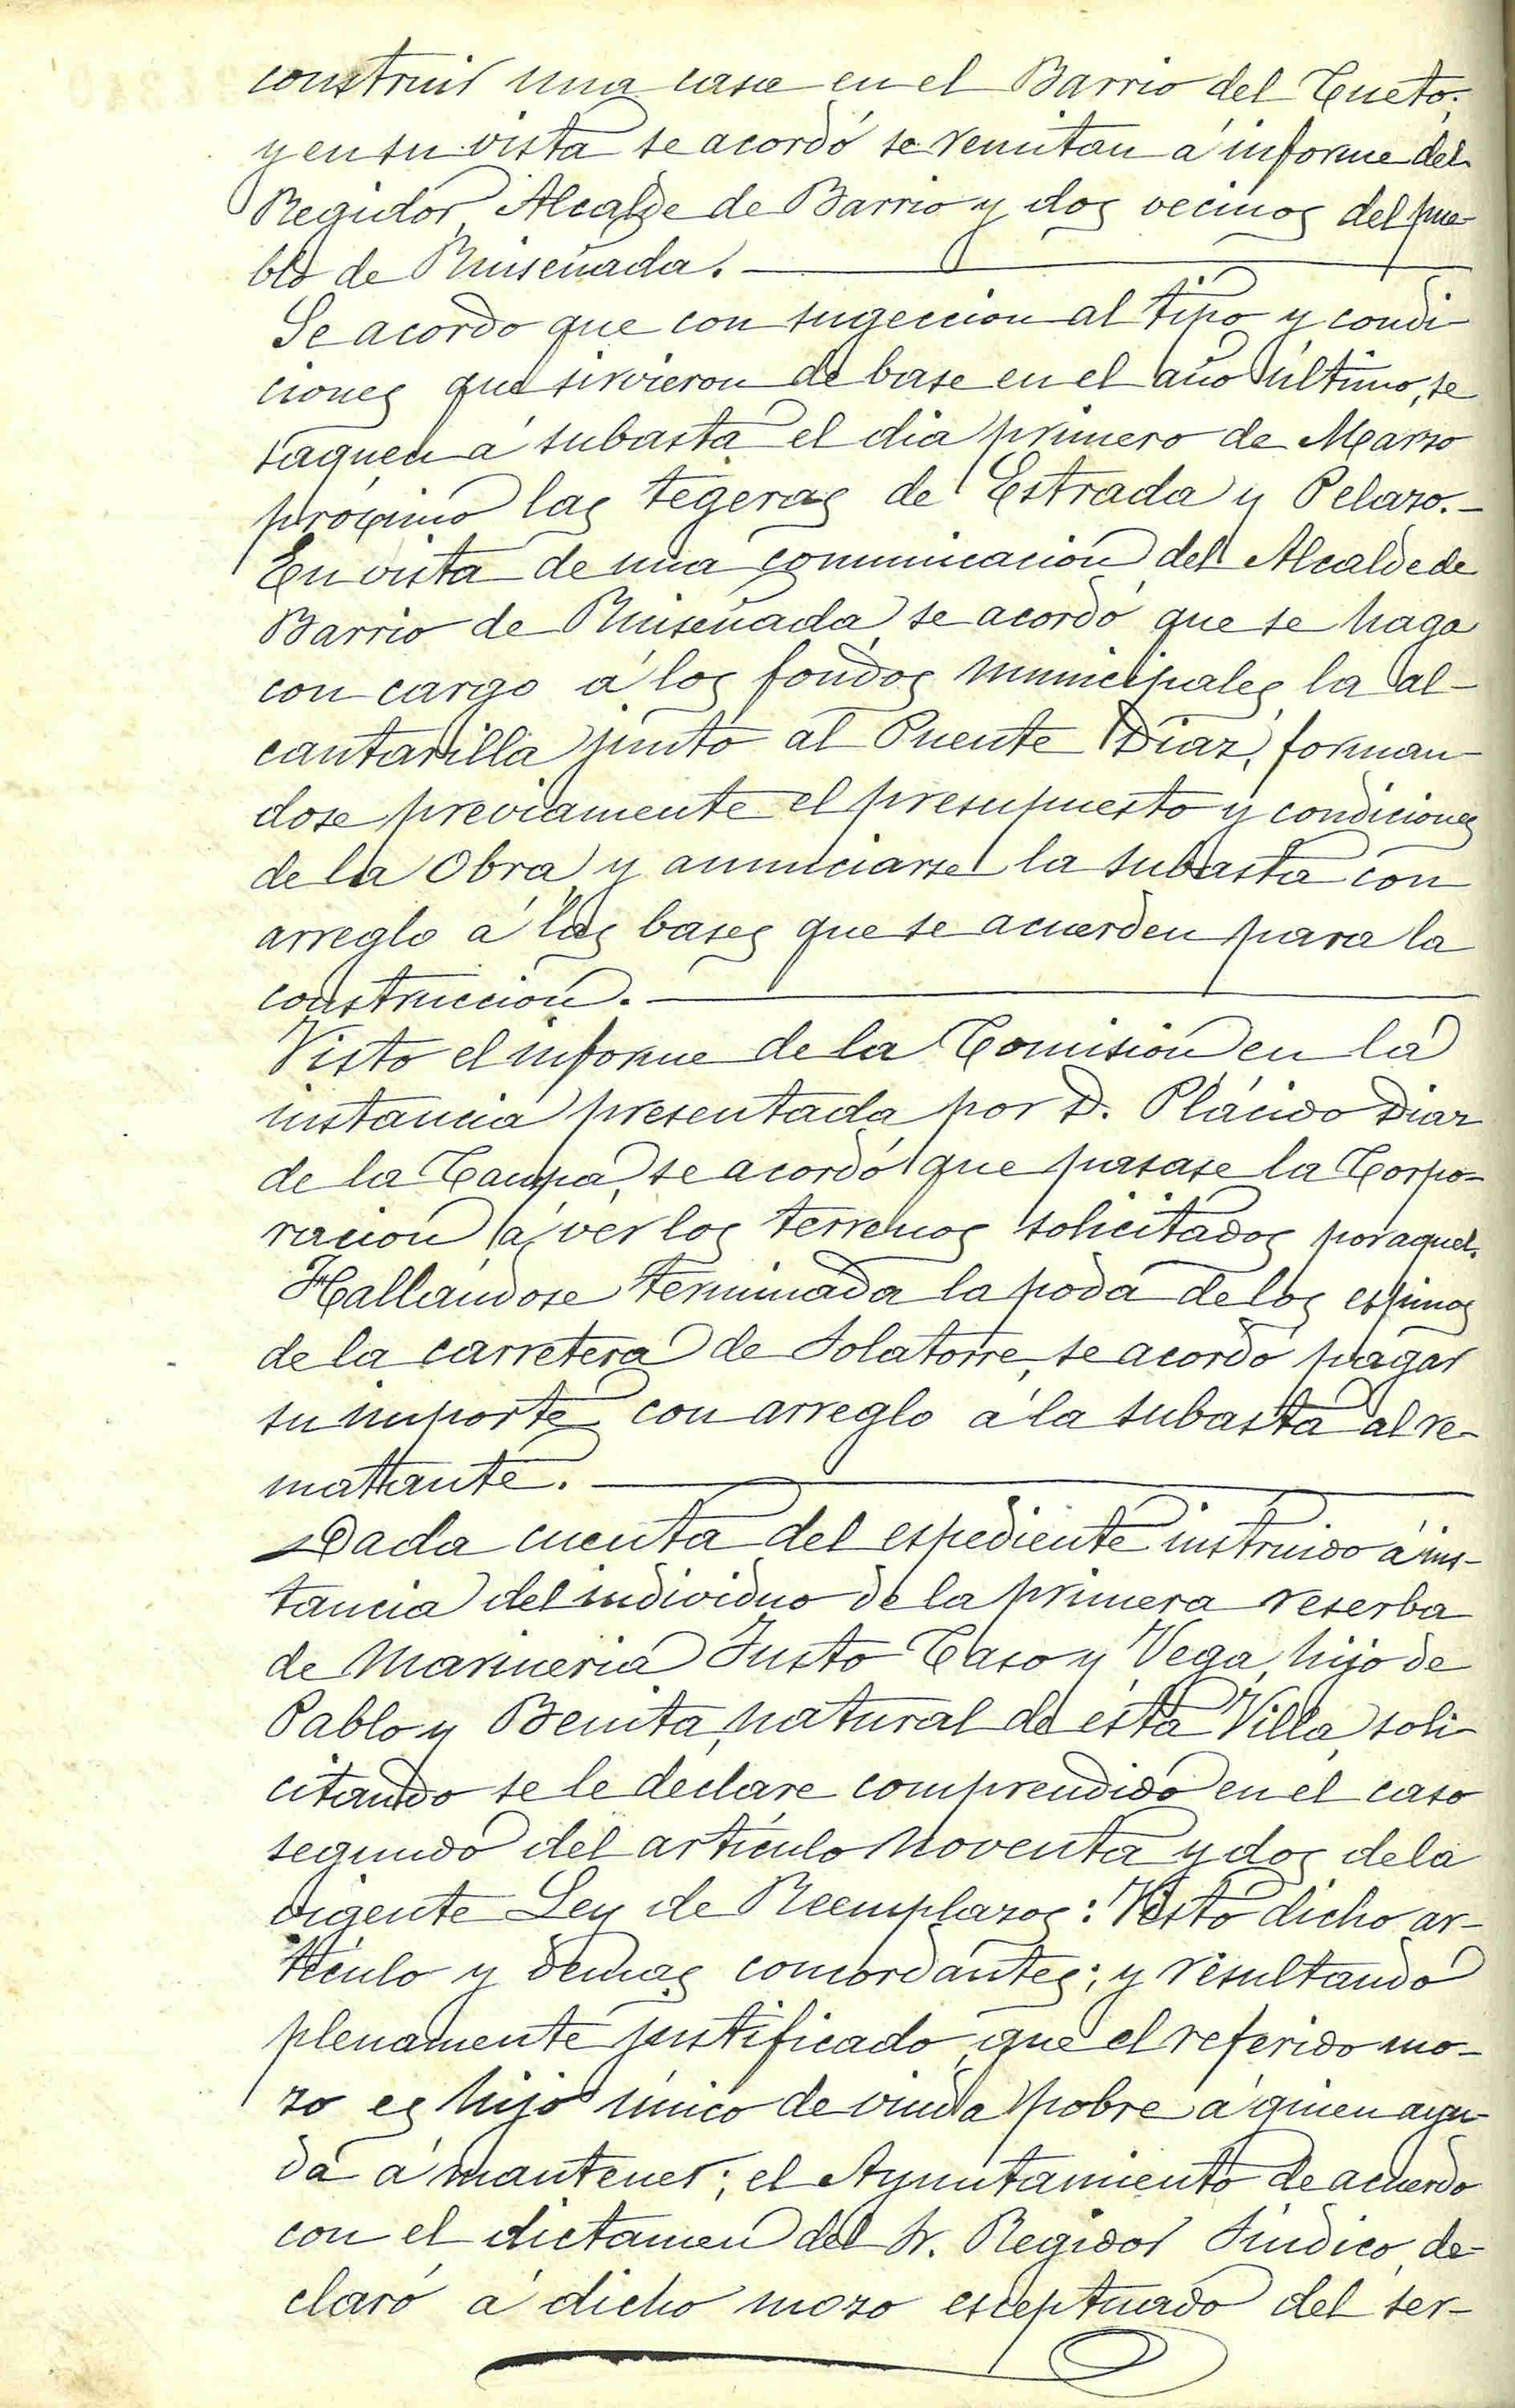 construir una casa en el Barrio del Cueto;
y en su vista se acordó se remitan á informe del
Regidor, Alcalde de Barrio y dos vecinos del pue-
blo de Ruiseñada.
Se acordo que con sugeccion al tipo y condi-
ciones que sirvieron de base en el año último, se
saquen á subasta el dia primero de Marzo
próximo las tegeras de Estrada y Pelazo.-
En vista de una comunicacion del Alcalde de
Barrio de Ruiseñada, se acordó que se haga
con cargo á los fondos municipales la al-
cantarilla junto al Puente Diaz, forman-
dose previamente el presupuesto y condiciones
de la Obra, y anunciarse la subasta con
arreglo á las bases que se acuerden para la
construccion.
Visto el informe de la Comision en la
instancia presentada por D. Plácido Diaz
de la Campa, se acordó que pasase la Corpo-
racion á ver los terrenos solicitados por aquel.
Hallándose terminada la poda de los espinos
de la carretera de Solatorre, se acordó pagar
su importe con arreglo á la subasta al re-
matante.
Dada cuenta del espediente instruido á ins-
tancia del individuo de la primera reserba
de Marineria Justo Caso y Vega, hijo de
Pablo y Benita, natural de ésta Villa, soli-
citando se le declare comprendido en el caso
segundo del artículo noventa y dos de la
vigente Ley de Reemplazos: Visto dicho ar-
tículo y demas concordantes; y resultando
plenamente justificado, que el referido mo-
zo es hijo único de viuda pobre á quien ayu-
da á mantener; el Ayuntamiento de acuerdo
con el dictamen del Sr. Regidor Síndico, de-
claró á dicho mozo esceptuado del ser-